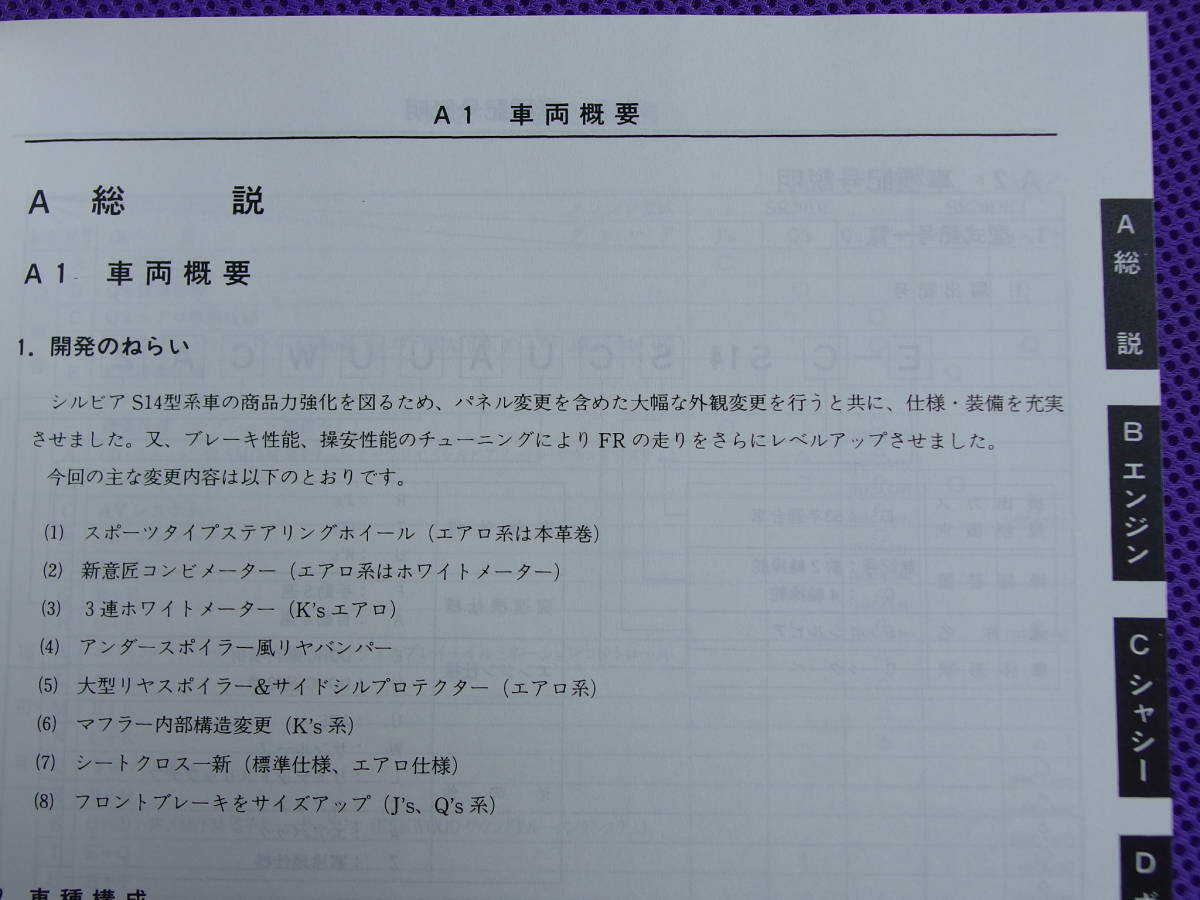 A1 車両概要
A 総説
A1 車両概要
1. 開発のねらい
シルビア S14型系車の商品力強化を図るため、パネル変更を含めた大幅な外観変更を行うと共に、仕様・装備を充実
させました。又、ブレーキ性能、操安性能のチューニングにより FR の走りをさらにレベルアップさせました。
今回の主な変更内容は以下のとおりです。
(1) スポーツタイプステアリングホイール（エアロ系は本革巻）
(2) 新意匠コンビメーター（エアロ系はホワイトメーター）
(3) 3連ホワイトメーター（K's エアロ）
(4) アンダースポイラー風リヤバンパー
(5) 大型リヤスポイラー&サイドシルプロテクター（エアロ系）
(6) マフラー内部構造変更（K's 系）
(7) シートクロス一新（標準仕様、エアロ仕様）
(8) フロントブレーキをサイズアップ（J's、Q's 系）
車種構成
A 総説
B エンジン
C シャシー
D